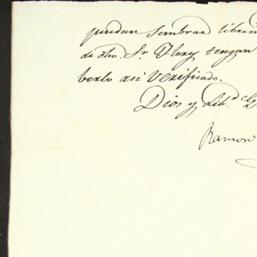 puedan sembrar librem
de dho. Sr. Vlory tengan
berlo asi verificado.
Dios y Lib.d
Ramon